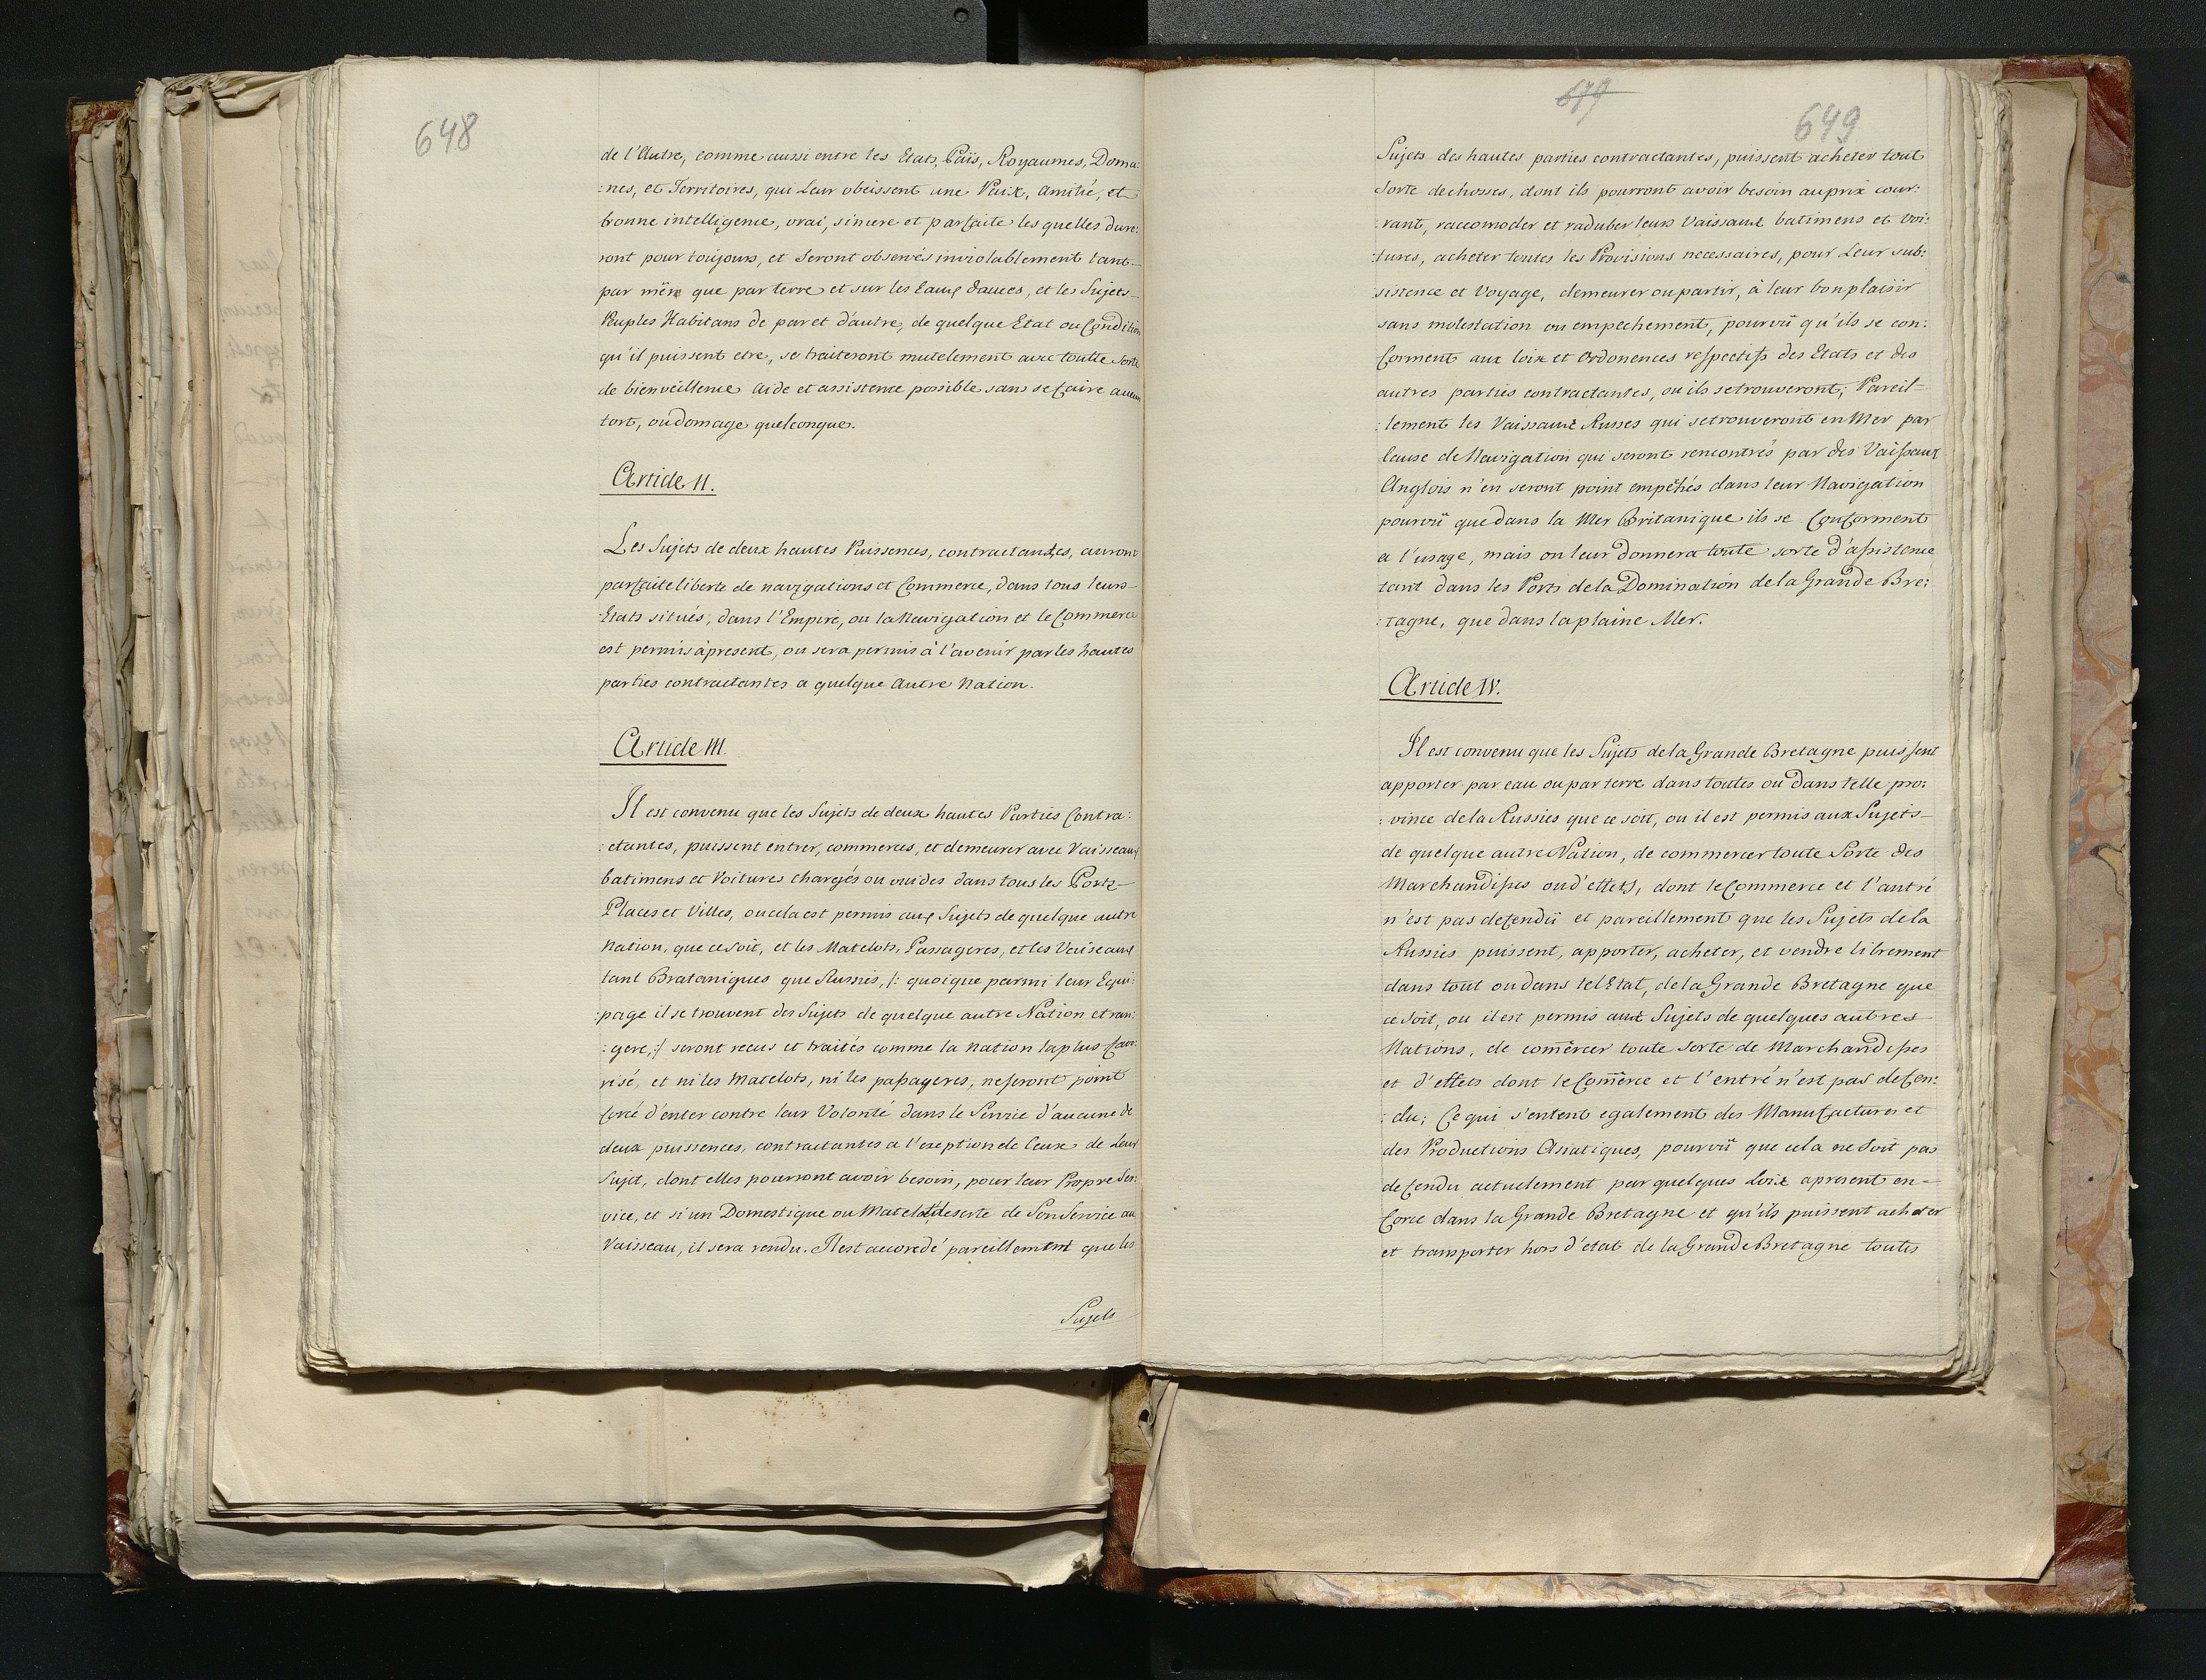 648
de l'Autre, comme aussi entre les Etats, Païs, Royaumes, Domai:
:nes, et Territoires, qui Leur obeissent une Paix, Amitié, et
bonne intelligence, vrai, sincere et parfaite les quelles dure:
ront pour toujours, et Seront observés inviolablement tant
par mer que par terre et sur les Eaux douces, et les Sujets
Peuples Habitans de par et d'autre, de quelque Etat ou Condition
qu'il puissent etre, se traiteront mutelement avec toutte Sorte
de bienveillence Aide et assistence possible sans se faire aucun
tort, ou domage quelconque.
Article II.
Les Sujets de deux hautes Puissences, contractantes, auront
parfaite liberte de navigations et Commerce, dans tous leurs
Etats situés, dans l'Empire, ou la Navigation et le Commerce
est permis àpresent, ou sera permis à l'avenir par les hautes
parties contractantes a quelque Autre Nation.
Article III.
Il est convenu que les Sujets de deux hautes Parties Contra:
:ctantes, puissent entrer, commerces, et demeurer avec Vaisseaux
batimens et Voitures chargés ou vuides dans tous les Ports
Places et Villes, ou cela est permis aux Sujets de quelque autre
Nation, que ce soit, et les Matelots, Passageres, et les Vaiseaux
tant Brataniques que Russies, /: quoique parmi leur Equi:
:page il se trouvent des Sujets de quelque autre Nation etran:
:gere, :/ seront recus et traités comme la Nation la plus favo:
risé, et ni les Matelots, ni les passageres, ne seront point
forcé d'enter contre leur Volonté dans le Servie d'aucune de
deux puissences, contractantes a l'exeption de Ceux de Leur
Sujet, dont elles pourront avoir besoin, pour leur Propre Ser:
vice, et si un Domestique ou Matelot deserte de Son Service au
Vaisseau, il sera rendu. Il est accordé pareillement que les
Sujets
679
649
Sujets des hautes parties contractantes, puissent acheter tout
Sorte de choses, dont ils pourront avoir besoin au prix cour:
:rant, raccomoder et raduber leurs Vaissaux batimens et Voi:
:tures, acheter toutes les Provisions necessaires, pour Leur sub:
:sistence et Voyage, demeurer ou partir, à leur bon plaisir
sans molestation ou empechement, pourvü qu'ils se con:
forment aux loix et Ordonences respectifs des Etats et des
autres parties contractantes, ou ils se trouveront; Pareil-
:lement les Vaissaux Russes qui se trouveront en Mer par
Cause de Navigation qui seront rencontrés par des Vaissaux
Anglois n'en seront point empêhés dans leur Navigation
pourvü que dans la Mer Britanique ils se Conforment
a l'usage, mais on leur donnera toute sorte d'assistence
tant dans les Ports de la Domination de la Grande Bre:
:tagne, que dans la plaine Mer.
Article IV.
Il est convenu que les Sujets de la Grande Bretagne puissent
apporter par eau ou par terre dans toutes ou dans telle pro:
:vince de la Russies que ce soit, ou il est permis aux Sujets
de quelque autre Nation, de commercer toute Sorte des
Marchandises ou d'effets, dont le Commerce et l'antré
n'est pas defendü et pareillement que les Sujets de la
Russies puissent, apporter, acheter, et vendre librement
dans tout ou dans tel Etat, de la Grande Bretagne que
ce Soit, ou il est permis aux Sujets de quelques autres
Nations, de comercer toute sorte de Marchandises
et d'effets dont le Comerce et l'entré n'est pas defen:
:du; Ce qui s'entent egalement des Manufactures et
des Productions Asiatiques, pourvü que cela ne Soit pas
defendu actuelement par quelques Loix apresent en-
force dans la Grande Bretagne et qu'ils puissent acheter
et transporter hors d'etat de la Grande Bretagne toutes